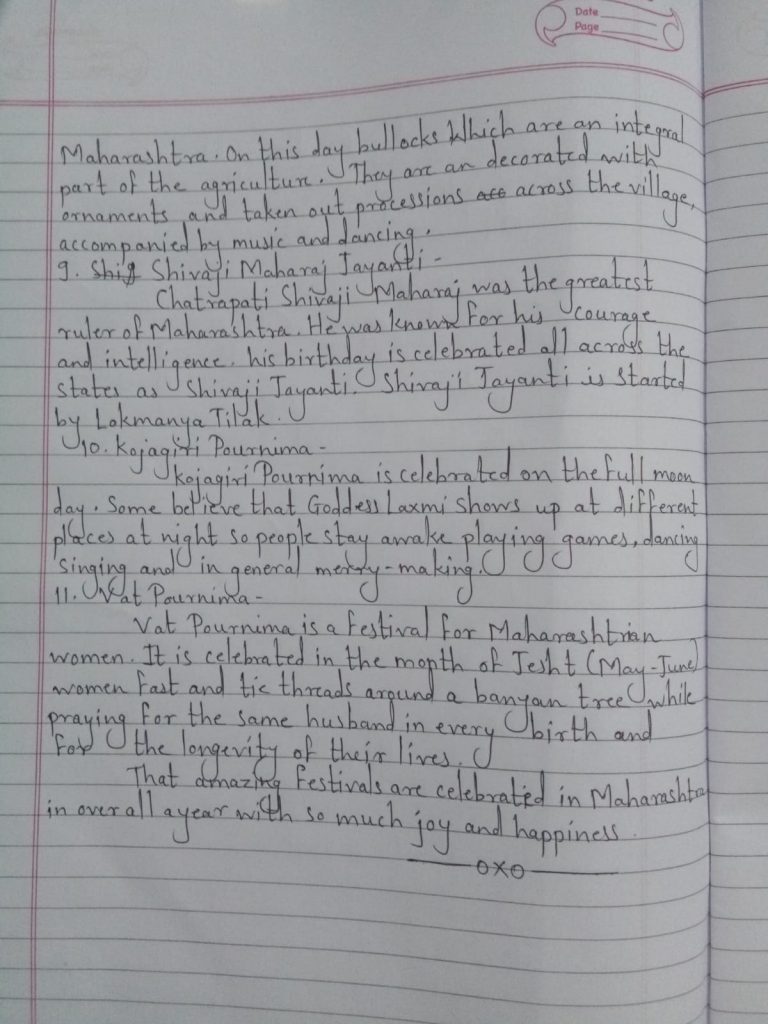 Date
Page
Maharashtra. On this day bullocks which are an integral
part of the agriculture. They are an decorated with
ornaments and taken out processions across the village,
accompanied by music and dancing.
9. Shivaji Maharaj Jayanti -
Chatrapati Shivaji Maharaj was the greatest
ruler of Maharashtra. He was known for his courage
and intelligence. his birthday is celebrated all across the
states as Shivaji Jayanti. Shivaji Jayanti is started
by Lokmanya Tilak.
10. Kojagiri Pournima -
Kojagiri Pournima is celebrated on the full moon
day. Some believe that Goddess Laxmi shows up at different
places at night so people stay awake playing games, dancing
singing and in general merry-making.
11. Vat Pournima -
Vat Pournima is a festival for Maharashtrian
women. It is celebrated in the month of Jesht (May-June)
women fast and tie threads around a banyan tree while
praying for the same husband in every birth and
for the longevity of their lives.
That amazing festivals are celebrated in Maharashtra
in over all a year with so much joy and happiness.
OXO